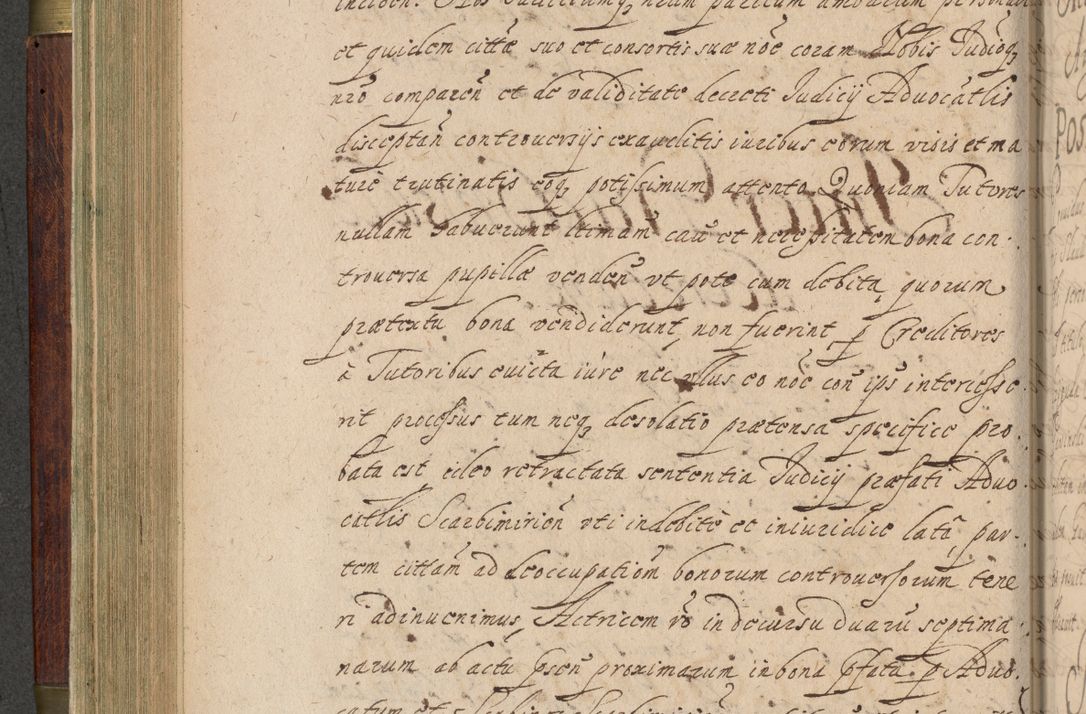 et quidem cittæ suo et consortis suæ nõe coram Nobis Judioq̃
nro comparen̄ et de validitate decreti Judicij Aduocatlis
disceptan̄ controuersijs exauditis iuribus eorum visis et ma
ture trutinatis eoq̃ potissimum attento Quoniam Tutores
nullam habuerunt ltimam cau̅ et necessitatem bona con-
trouersa pupillæ venden̄ vt pote cum debita, quorum
prætextu bona vendiderunt, non fuerint p Creditores
à Tutoribus euicta iure nec vllus eo nõe con̄ ips̄ intercesse
rit processus tum neq̃ desolatio prætensa specifice pro
bata est, ideo retractata sententia Judicij præfati Aduo
catlis Scarbimirien̄ vti indebite et iniuridice lata, par-
tem cittam ad deoccupationem bonorum controuersorum tene
ri adinuenimus, Actricem vo in decursu duaru septima
narum ab actu psen̄ proximarum in bona pfata p Aduo